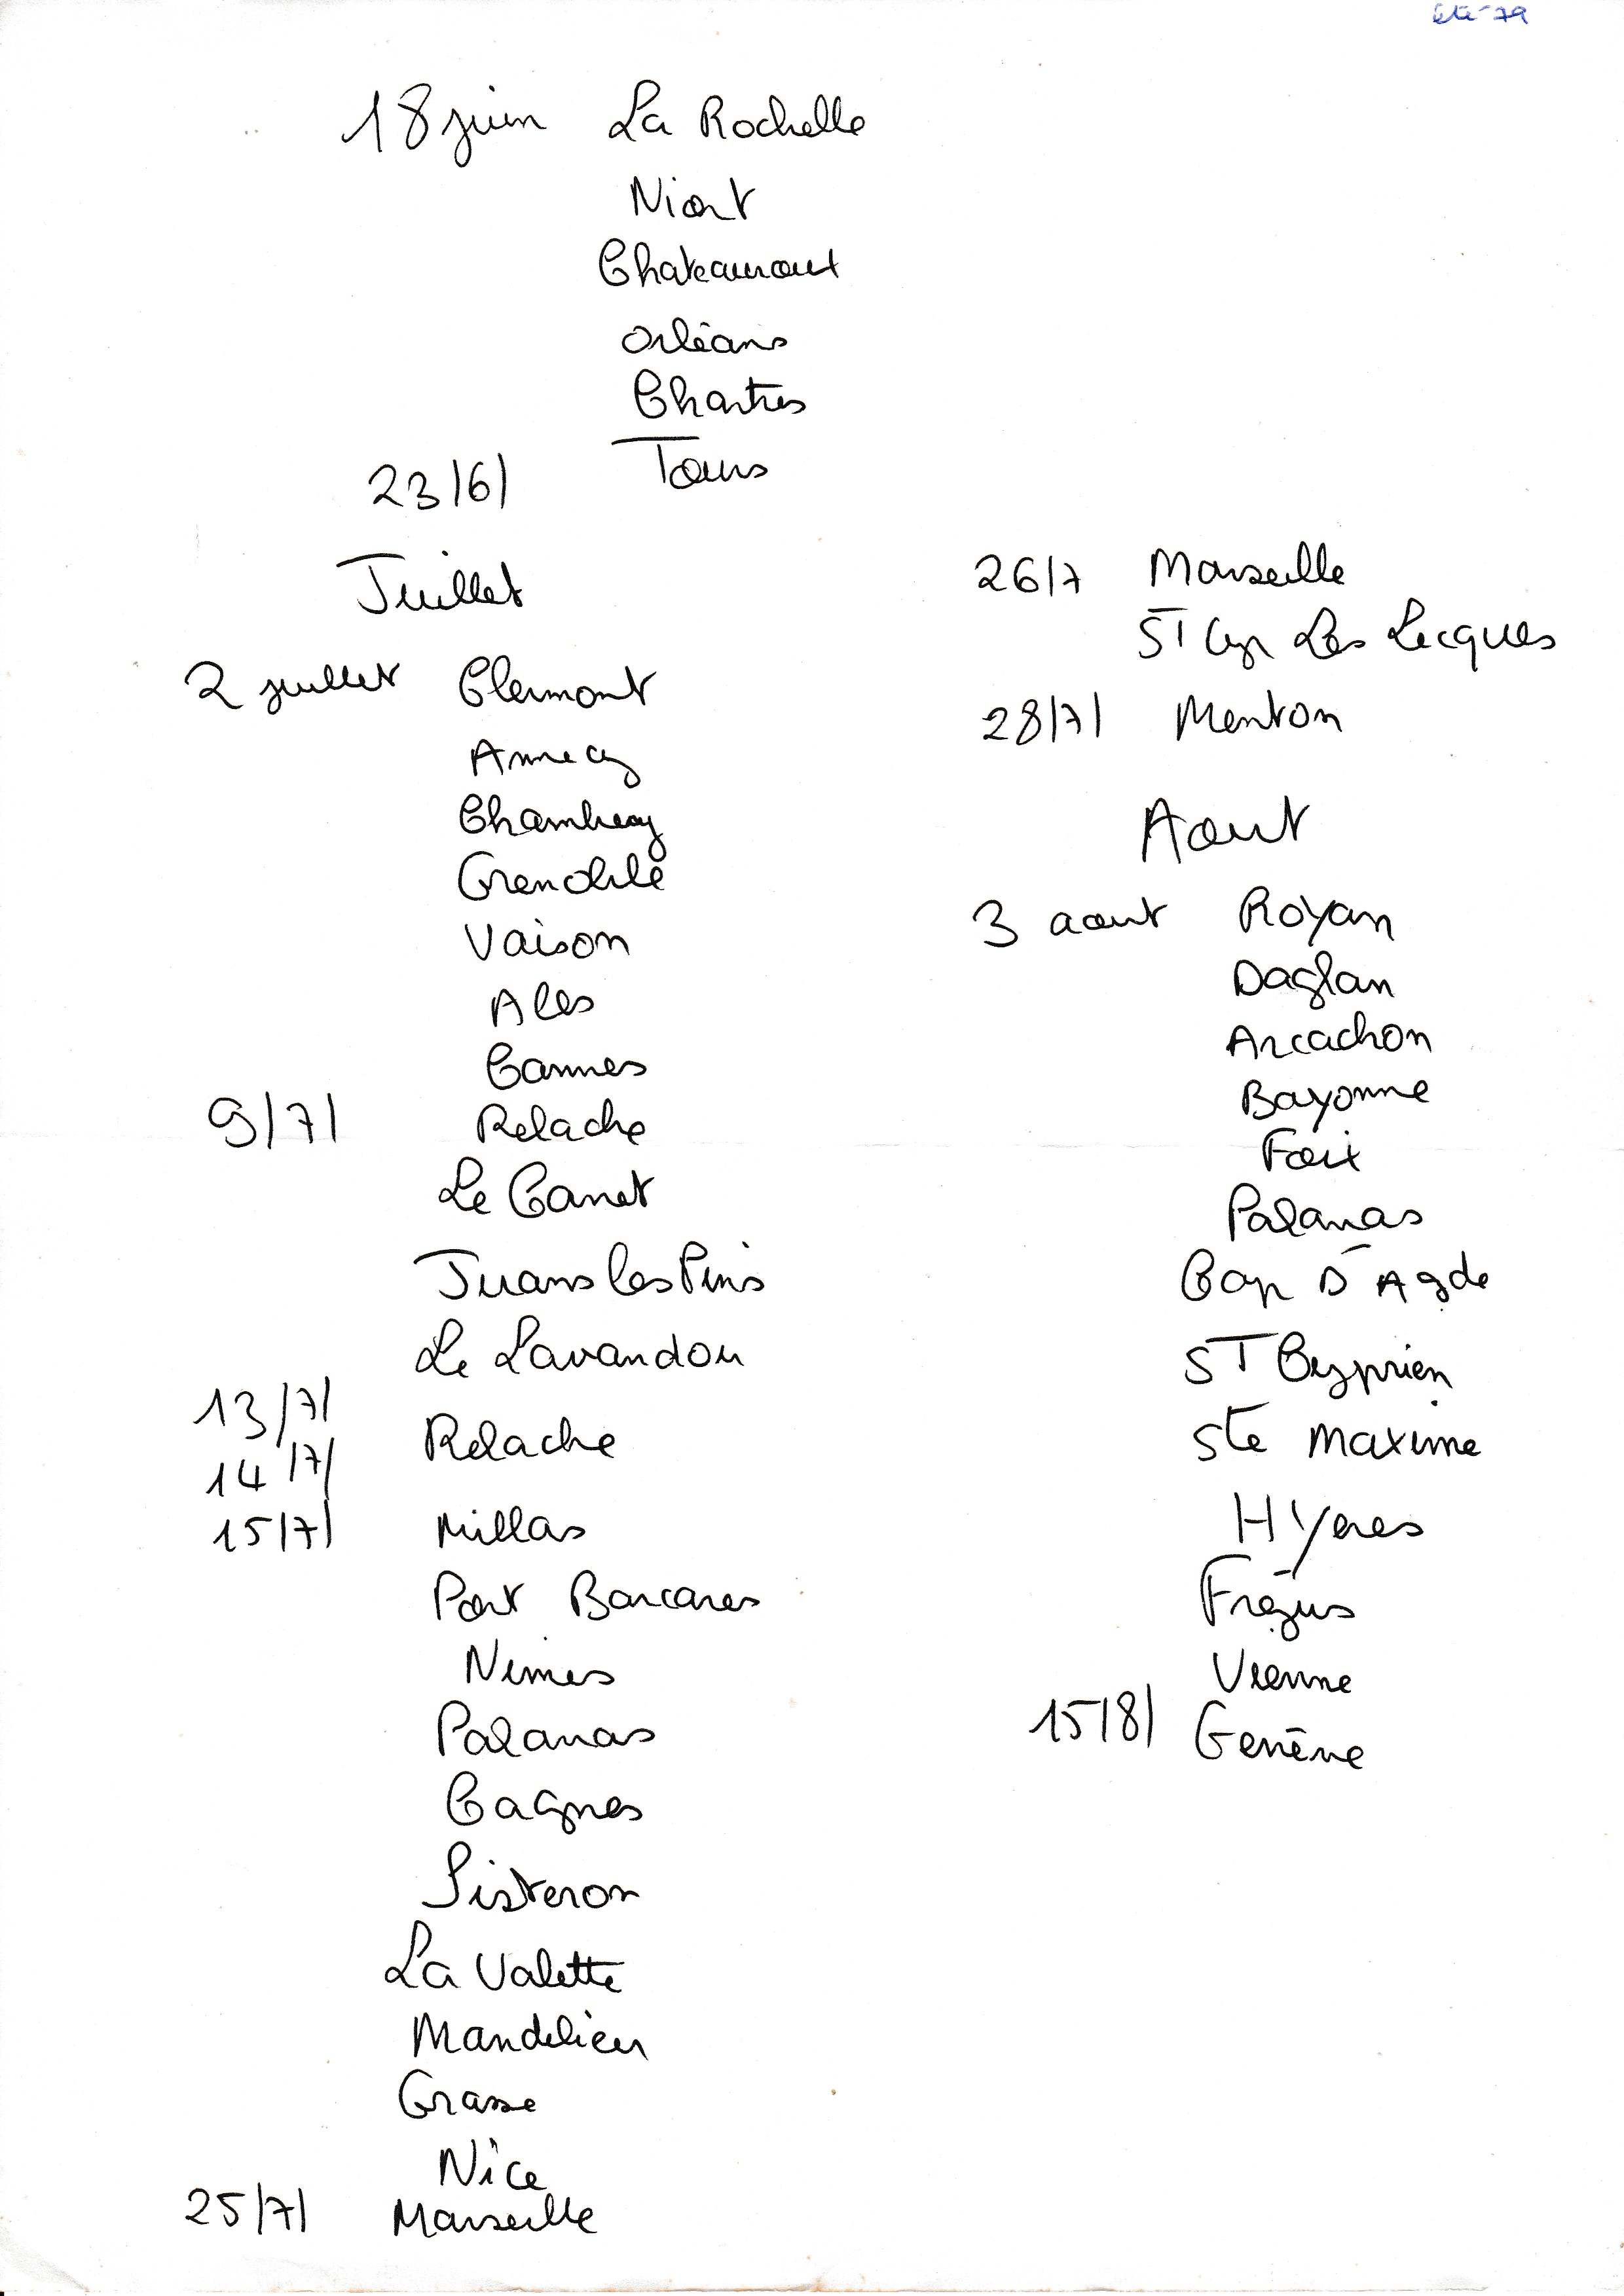 été 79
18 juin La Rochelle
Niort
Chateauroux
Orléans
Chartres
23/6/ Tours
Juillet
2 juillet Clermont
Annecy
Chambery
Grenoble
Vaison
Ales
Cannes
9/7/ Relache
Le Canet
Juans les Pins
Le Lavandou
13/7/
14/7/ Relache
15/7/ Millas
Port Barcares
Nimes
Palavas
Cagnes
Sisteron
La Valette
Mandelieu
Grasse
Nice
25/7/ Marseille
26/7 Marseille
ST Cyr Les Lecques
28/7/ Menton
Aout
3 aout Royan
Daglan
Arcachon
Bayonne
Foix
Palavas
Cap D'Agde
ST Cyprien
Ste Maxime
HYeres
Fréjus
Vienne
15/8/ Genève